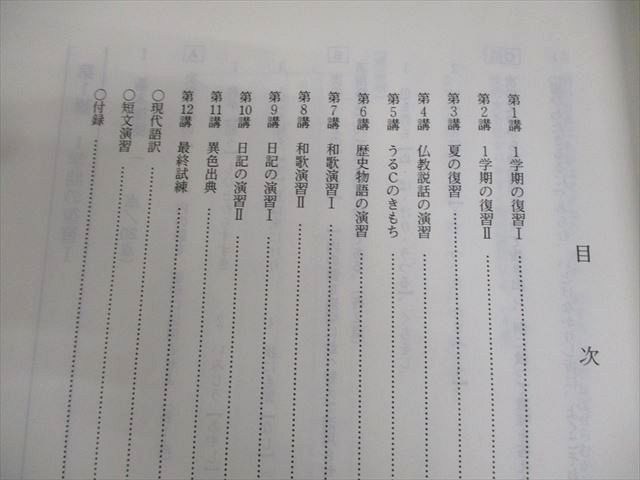 目次
第1講 1学期の復習Ⅰ
第2講 1学期の復習Ⅱ
第3講 夏の復習
第4講 仏教説話の演習
第5講 うるCのきもち
第6講 歴史物語の演習
第7講 和歌演習Ⅰ
第8講 和歌演習Ⅱ
第9講 日記の演習Ⅰ
第10講 日記の演習Ⅱ
第11講 異色出典
第12講 最終試練
○現代語訳
○短文演習
○付録